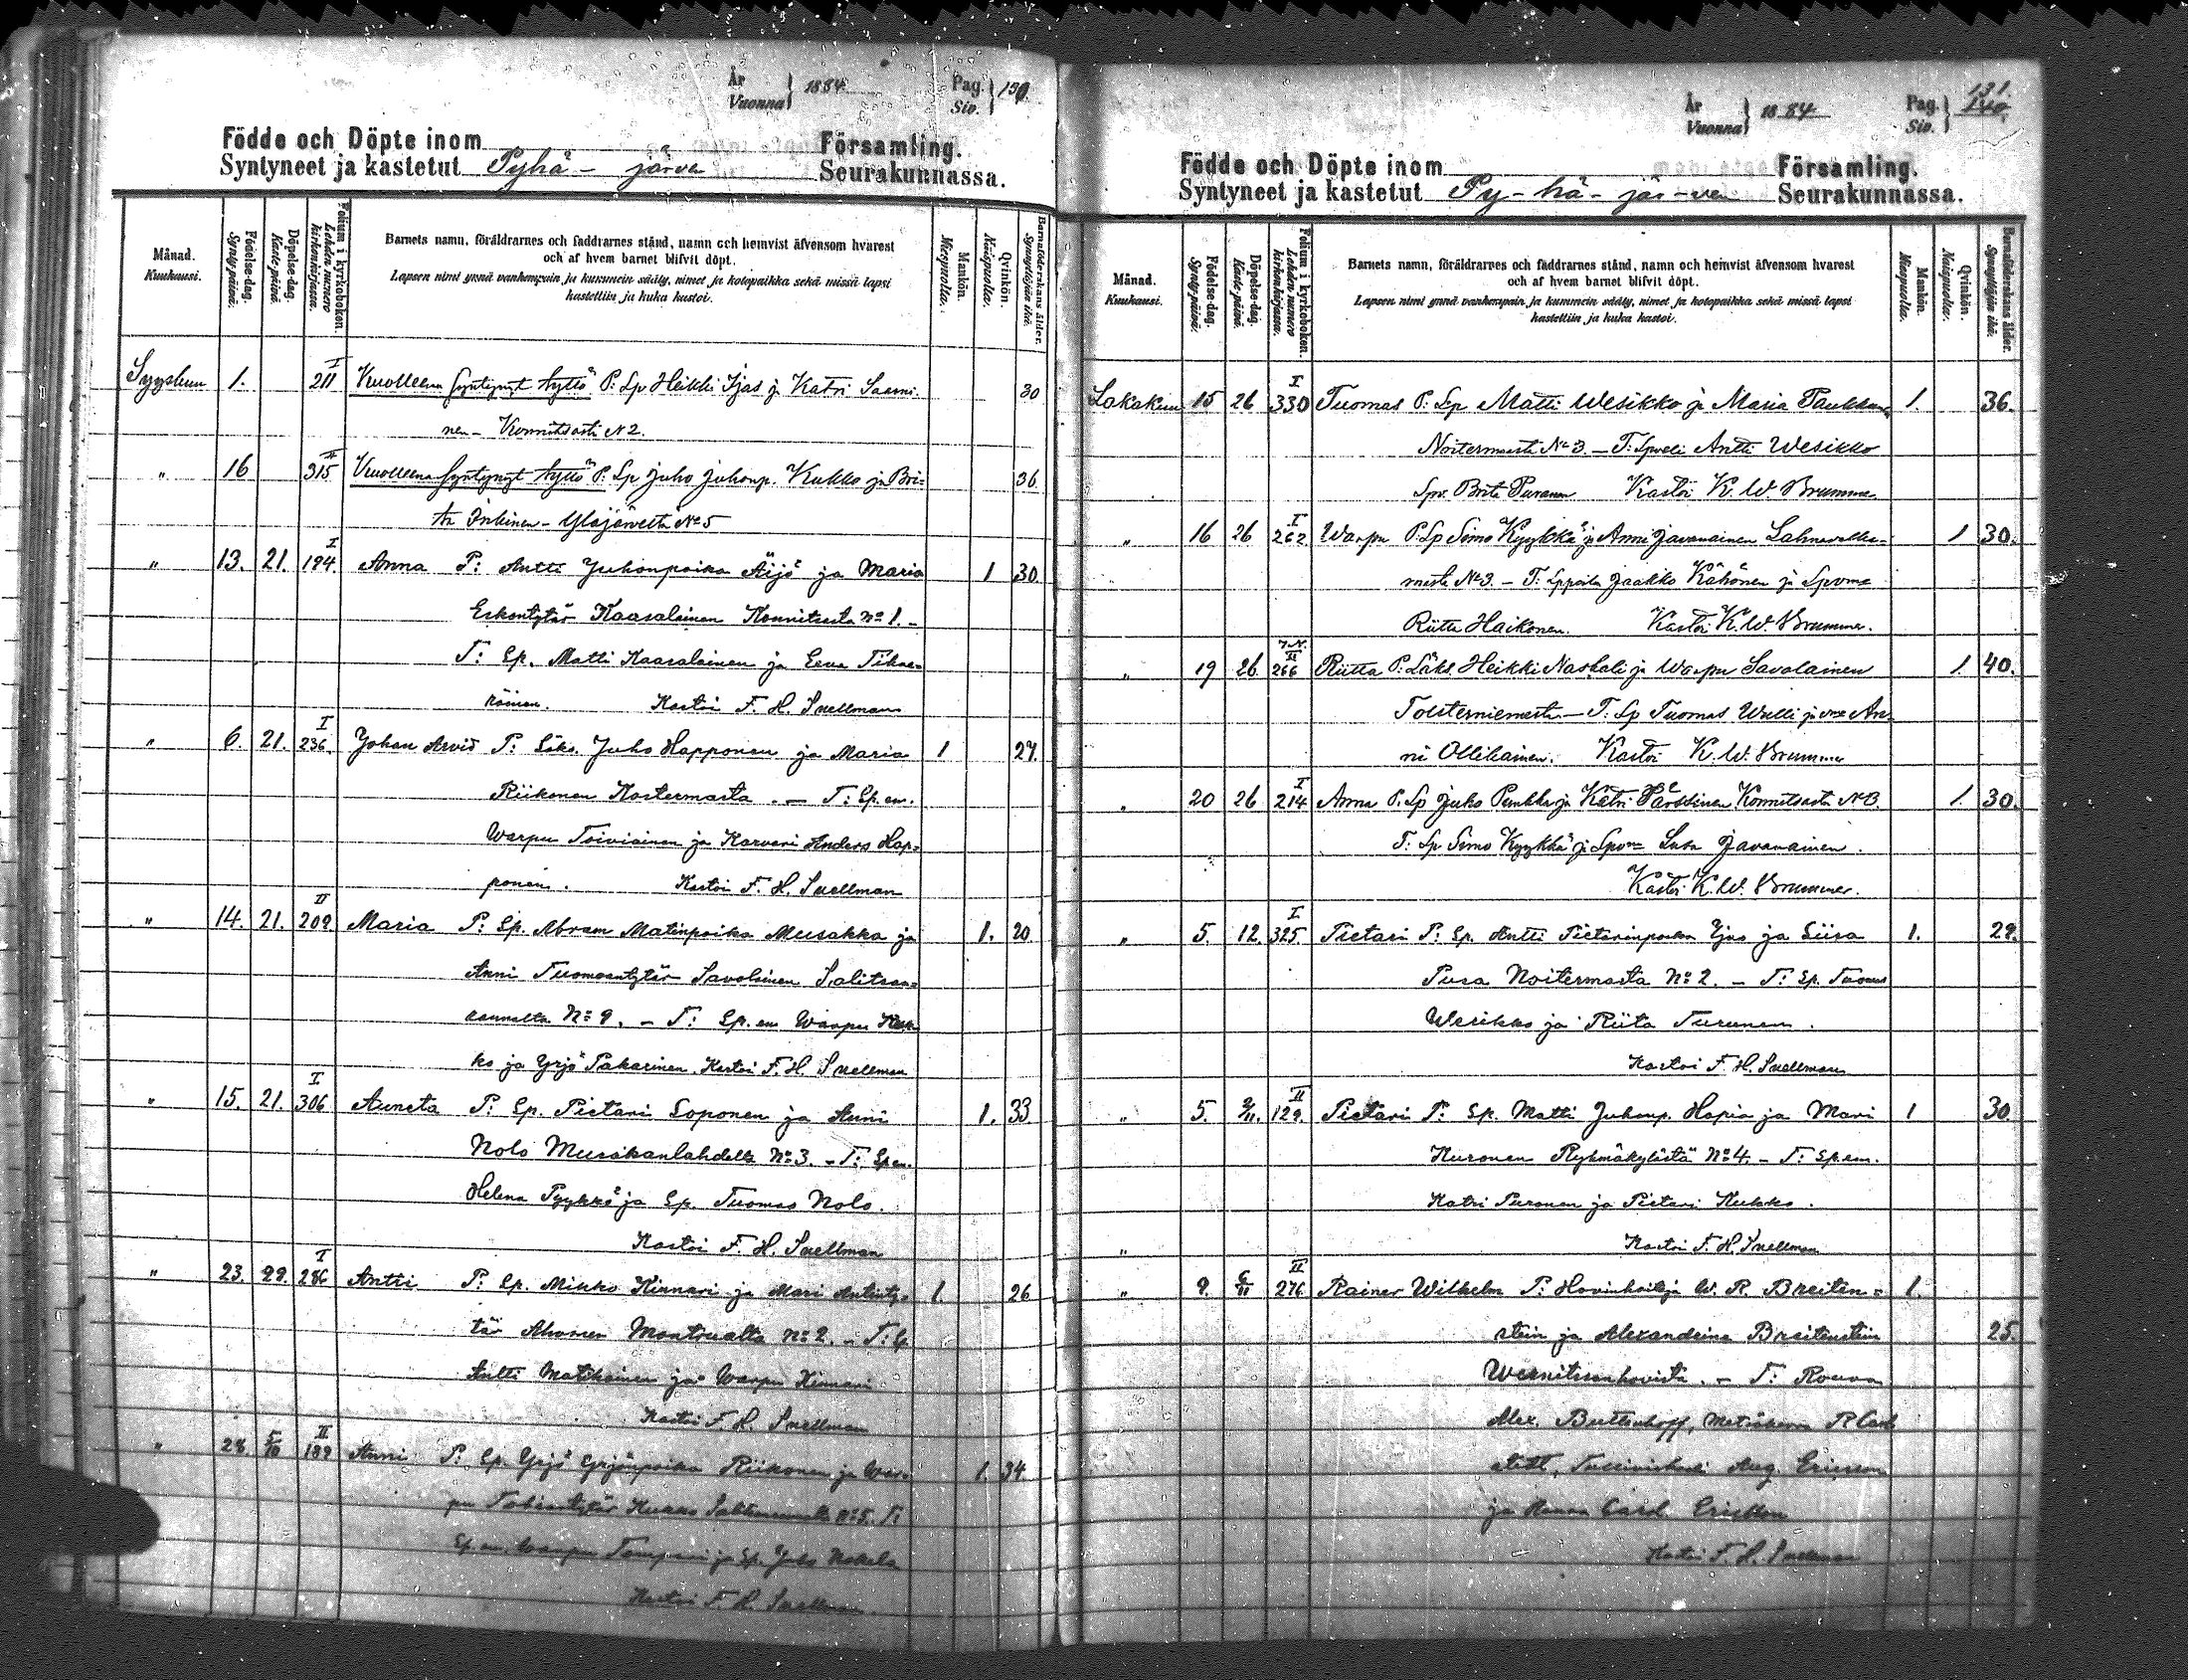 År
Vuonna } 1884
Pag.
Siv. } 130.
Födde och Döpte inom Församling.
Syntyneet ja kastetut Pyhä-järven Seurakunnassa.
Månad.
Kuukausi.
Födelse-dag.
Synty-päivä.
Döpelse-dag.
Kaste-päivä.
Folium i kyrkoboken.
Lehden numero kirkonkirjassa.
Barnets namn, föräldrarnes och faddrarnes stånd, namn och hemvist äfvensom hvarest
och af hvem barnet blifvit döpt.
Lapsen nimi ynnä vanhempain ja kummein sääty, nimet ja kotopaikka sekä missä lapsi
kastettiin ja kuka kastoi.
Mankön.
Miespuolia.
Qvinkön.
Naispuolia.
Barnaföderskans ålder.
Synnyttäjän ikä.
Syyskuu 1. I 211 Kuolleena syntynyt tyttö P: Lp Heikki Ijas ja Katri Saami- 30
nen - Konnitsasta N 2.
" 16 II 315 Kuolleena syntynyt tyttö P: Lp Juho Juhonp. Kukko ja Bri= 36
ta Inkinen - Yläjärveltä No 5
" 13. 21. I 194. Anna P: Antti Juhonpoika Äijö ja Maria 1 30.
Eskontytär Kaasalainen Konnitsasta No 1. -
T: Lp. Matti Kaasalainen ja Eeva Tihve=
räinen. Kastoi F. H. Snellman
" 6. 21. I 236. Johan Arvid P: Läks. Juho Happonen ja Maria 1 27.
Riikonen Kostermasta. - T: Lp. em.
Warpu Toiviainen ja Karvari Anders Hap=
ponen. Kastoi F. H. Snellman
" 14. 21. II 209 Maria P: Lp. Abram Matinpoika Musakka ja 1. 20
Anni Tuomaantytär Savolainen Salitsan=
rannalta No 9. - T: Lp. em Warpu Kuk
ko ja Yrjö Pakarinen. Kastoi F. H. Snellman
" 15. 21. I 306 Auneta P: Lp. Pietari Loponen ja Anni 1. 33
Nolo Musakanlahdelta No 3. - T: Lp em.
Helena Pyykkö ja Lp. Tuomas Nolo.
Kastoi F. H. Snellman
" 23. 29. I 286 Antti P: Lp. Mikko Kinnari ja Mari Antinty= 1. 26
tär Ahonen Montrualta No 2. - T: Lp
Antti Matikainen ja Warpu Kinnari
Kastoi F. H. Snellman
" 28. 5/10 II 189 Anni P: Lp. Yrjö Yrjönpoika Riikonen ja War= 1. 34
pu Kukko No 5. T:
Lp. em. Warpu ja Lp. Juho
Kastoi F. H. Snellman.
År
Vuonna } 1884
Pag.
Siv. } 131.
140.
Födde och Döpte inom Församling.
Syntyneet ja kastetut Py-hä-jär-ven Seurakunnassa.
Månad.
Kuukausi.
Födelse-dag.
Synty-päivä.
Döpelse-dag.
Kaste-päivä.
Folium i kyrkoboken.
Lehden numero kirkonkirjassa.
Barnets namn, föräldrarnes och faddrarnes stånd, namn och hemvist äfvensom hvarest
och af hvem barnet blifvit döpt.
Lapsen nimi ynnä vanhempain ja kummein sääty, nimet ja kotopaikka sekä missä lapsi
kastettiin ja kuka kastoi.
Mankön.
Miespuolia.
Qvinkön.
Naispuolia.
Barnaföderskans ålder.
Synnyttäjän ikä.
Lokakuu 15 26 I 330 Tuomas P: Lp Matti Wesikko ja Maria Paukkunen 1. 36.
Noitermasta No 3. - T: Antti Wesikko
Brita Puranen Kastoi K. W. Brummer
" 16 26 I 262 Warpu P. Lp Simo Kyykkä ja Anni Javanainen Lahnavalka- 1 30.
masta No 3. - T: Jaakko Kähönen ja
Riitta Haikonen. Kastoi K. W. Brummer.
" 19 26. II 266 Riitta P: Läks. Heikki Naskali ja Warpu Savolainen 1. 40.
Tolsterniemestä - T: Lp Tuomas Welli ja An-
ni Ollikainen. Kastoi K. W. Brummer
" 20 26 I 214 Anna P. Lp Juho Punkka ja Katri Konnitsasta N 13. 1. 30.
T: Lp Simo Kyykkä ja Javanainen.
Kastoi K. W. Brummer.
" 5. 12. I 325. Pietari P: Lp. Antti Pietarinpoika Ijas ja Liisa 1. 29.
Pusa Noitermasta No 2. - T: Lp. Tuomas
Wesikko ja Riita Turunen.
Kastoi F. H. Snellman
" 5. 2/11. II 129. Pietari P: Lp. Matti Juhonp. Hapia ja Mari 1 30.
Kuronen Ryhmäkylästä No 4. - T: Lp. em.
Katri Puronen ja Pietari Kukko.
" Kastoi F. H. Snellman
" 9. 6/11 II 276 Rainer Wilhelm P: Hovinhoitaja W. R. Breiten= 1.
stein ja Alexandrina Breitenstein 25.
Wernitsanhovista. - T: Rouva
Alex. Buttenhoff,
Aug. Ericsson
ja Carol. Ericsson
Kastoi F. H. Snellman